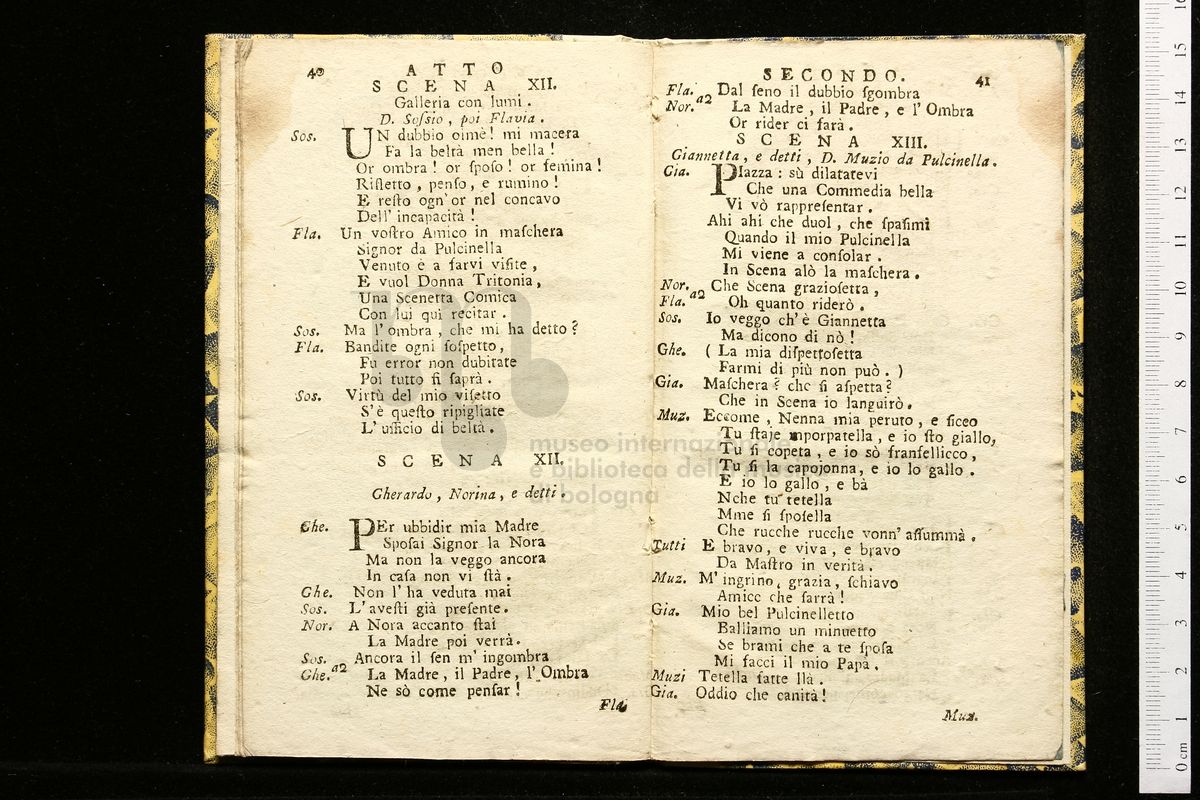 40 ATTO
SCENA XII.
Galleria con lumi.
D. Sossio, poi Flavia.
Sos. UN dubbio oimè! mi macera
Fa la beltà men bella!
Or ombra! or sposo! or femina!
Rifletto, penso, e rumino!
E resto ogn'or nel concavo
Dell' incapacità!
Fla. Un vostro Amico in maschera
Signor da Pulcinella
Venuto è a farvi visite,
E vuol Donna Tritonia,
Una Scenetta Comica
Con lui qui recitar.
Sos. Ma l'ombra, che mi ha detto?
Fla. Bandite ogni sospetto,
Fu error non dubitate
Poi tutto si saprà.
Sos. Virtù del mio visetto
S'è questo ripigliate
L'ufficio di beltà.
SCENA XII.
Gherardo, Norina, e detti.
Ghe. PEr ubbidir mia Madre
Sposai Signor la Nora
Ma non la veggo ancora
In casa non vi stà.
Ghe. Non l'ha veduta mai
Sos. L'avesti già presente.
Nor. A Nora accanto stai
La Madre poi verrà.
Sos. Ancora il sen m'ingombra
Ghe. a2 La Madre, il Padre, l'Ombra
Ne sò come pensar!
Fla.
SECONDO. 41
Fla. Dal seno il dubbio sgombra
Nor. a2 La Madre, il Padre, e l'Ombra
Or rider ci farà.
SCENA XIII.
Giannetta, e detti, D. Muzio da Pulcinella.
Gia. PIazza: sù dilatatevi
Che una Commedia bella
Vi vò rappresentar.
Ahi ahi che duol, che spasimi
Quando il mio Pulcinella
Mi viene a consolar.
In Scena alò la maschera.
Nor. Che Scena graziosetta,
Fla. a2 Oh quanto riderò.
Sos. Io veggo ch'è Giannetta
Ma dicono di nò!
Ghe. (La mia dispettosetta
Farmi di più non può.)
Gia. Maschera? che si aspetta?
Che in Scena io languirò.
Muz. Eccome, Nenna mia peruto, e siceo
Tu staje mporpatella, e io sto giallo,
Tu si copeta, e io sò fransellicco,
Tu si la capojonna, e io lo gallo.
E io lo gallo, e bà
Nche tu tetella
Mme si sposella
Che rucche rucche vonn'assummà.
Tutti E bravo, e viva, e bravo
Da Mastro in verità.
Muz. M'ingrino, grazia, schiavo
Amice che sarrà!
Gia. Mio bel Pulcinelletto
Balliamo un minuetto
Se brami che a te sposa
Mi facci il mio Papà.
Muzi Tetella fatte llà.
Gia. Oddio che canità!
Muz.
museo internazionale
e biblioteca della musica
di bologna